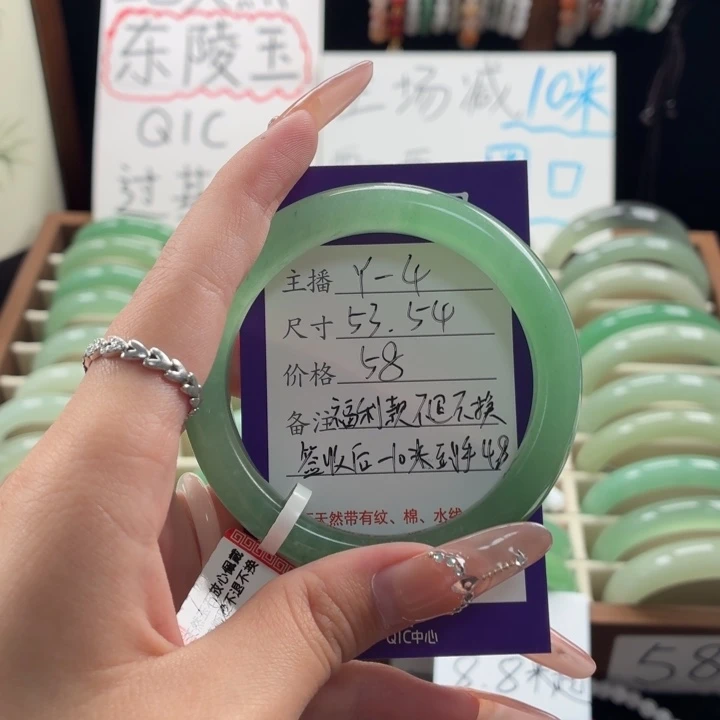 东陵玉
QIC
全场减10米
主播 Y-4
尺寸 53.54
价格 58
备注 福利款不退不换
签收后-10米到手48
天然带有纹、棉、水线
放心佩戴
不退不换
QIC中心
8.8米
58